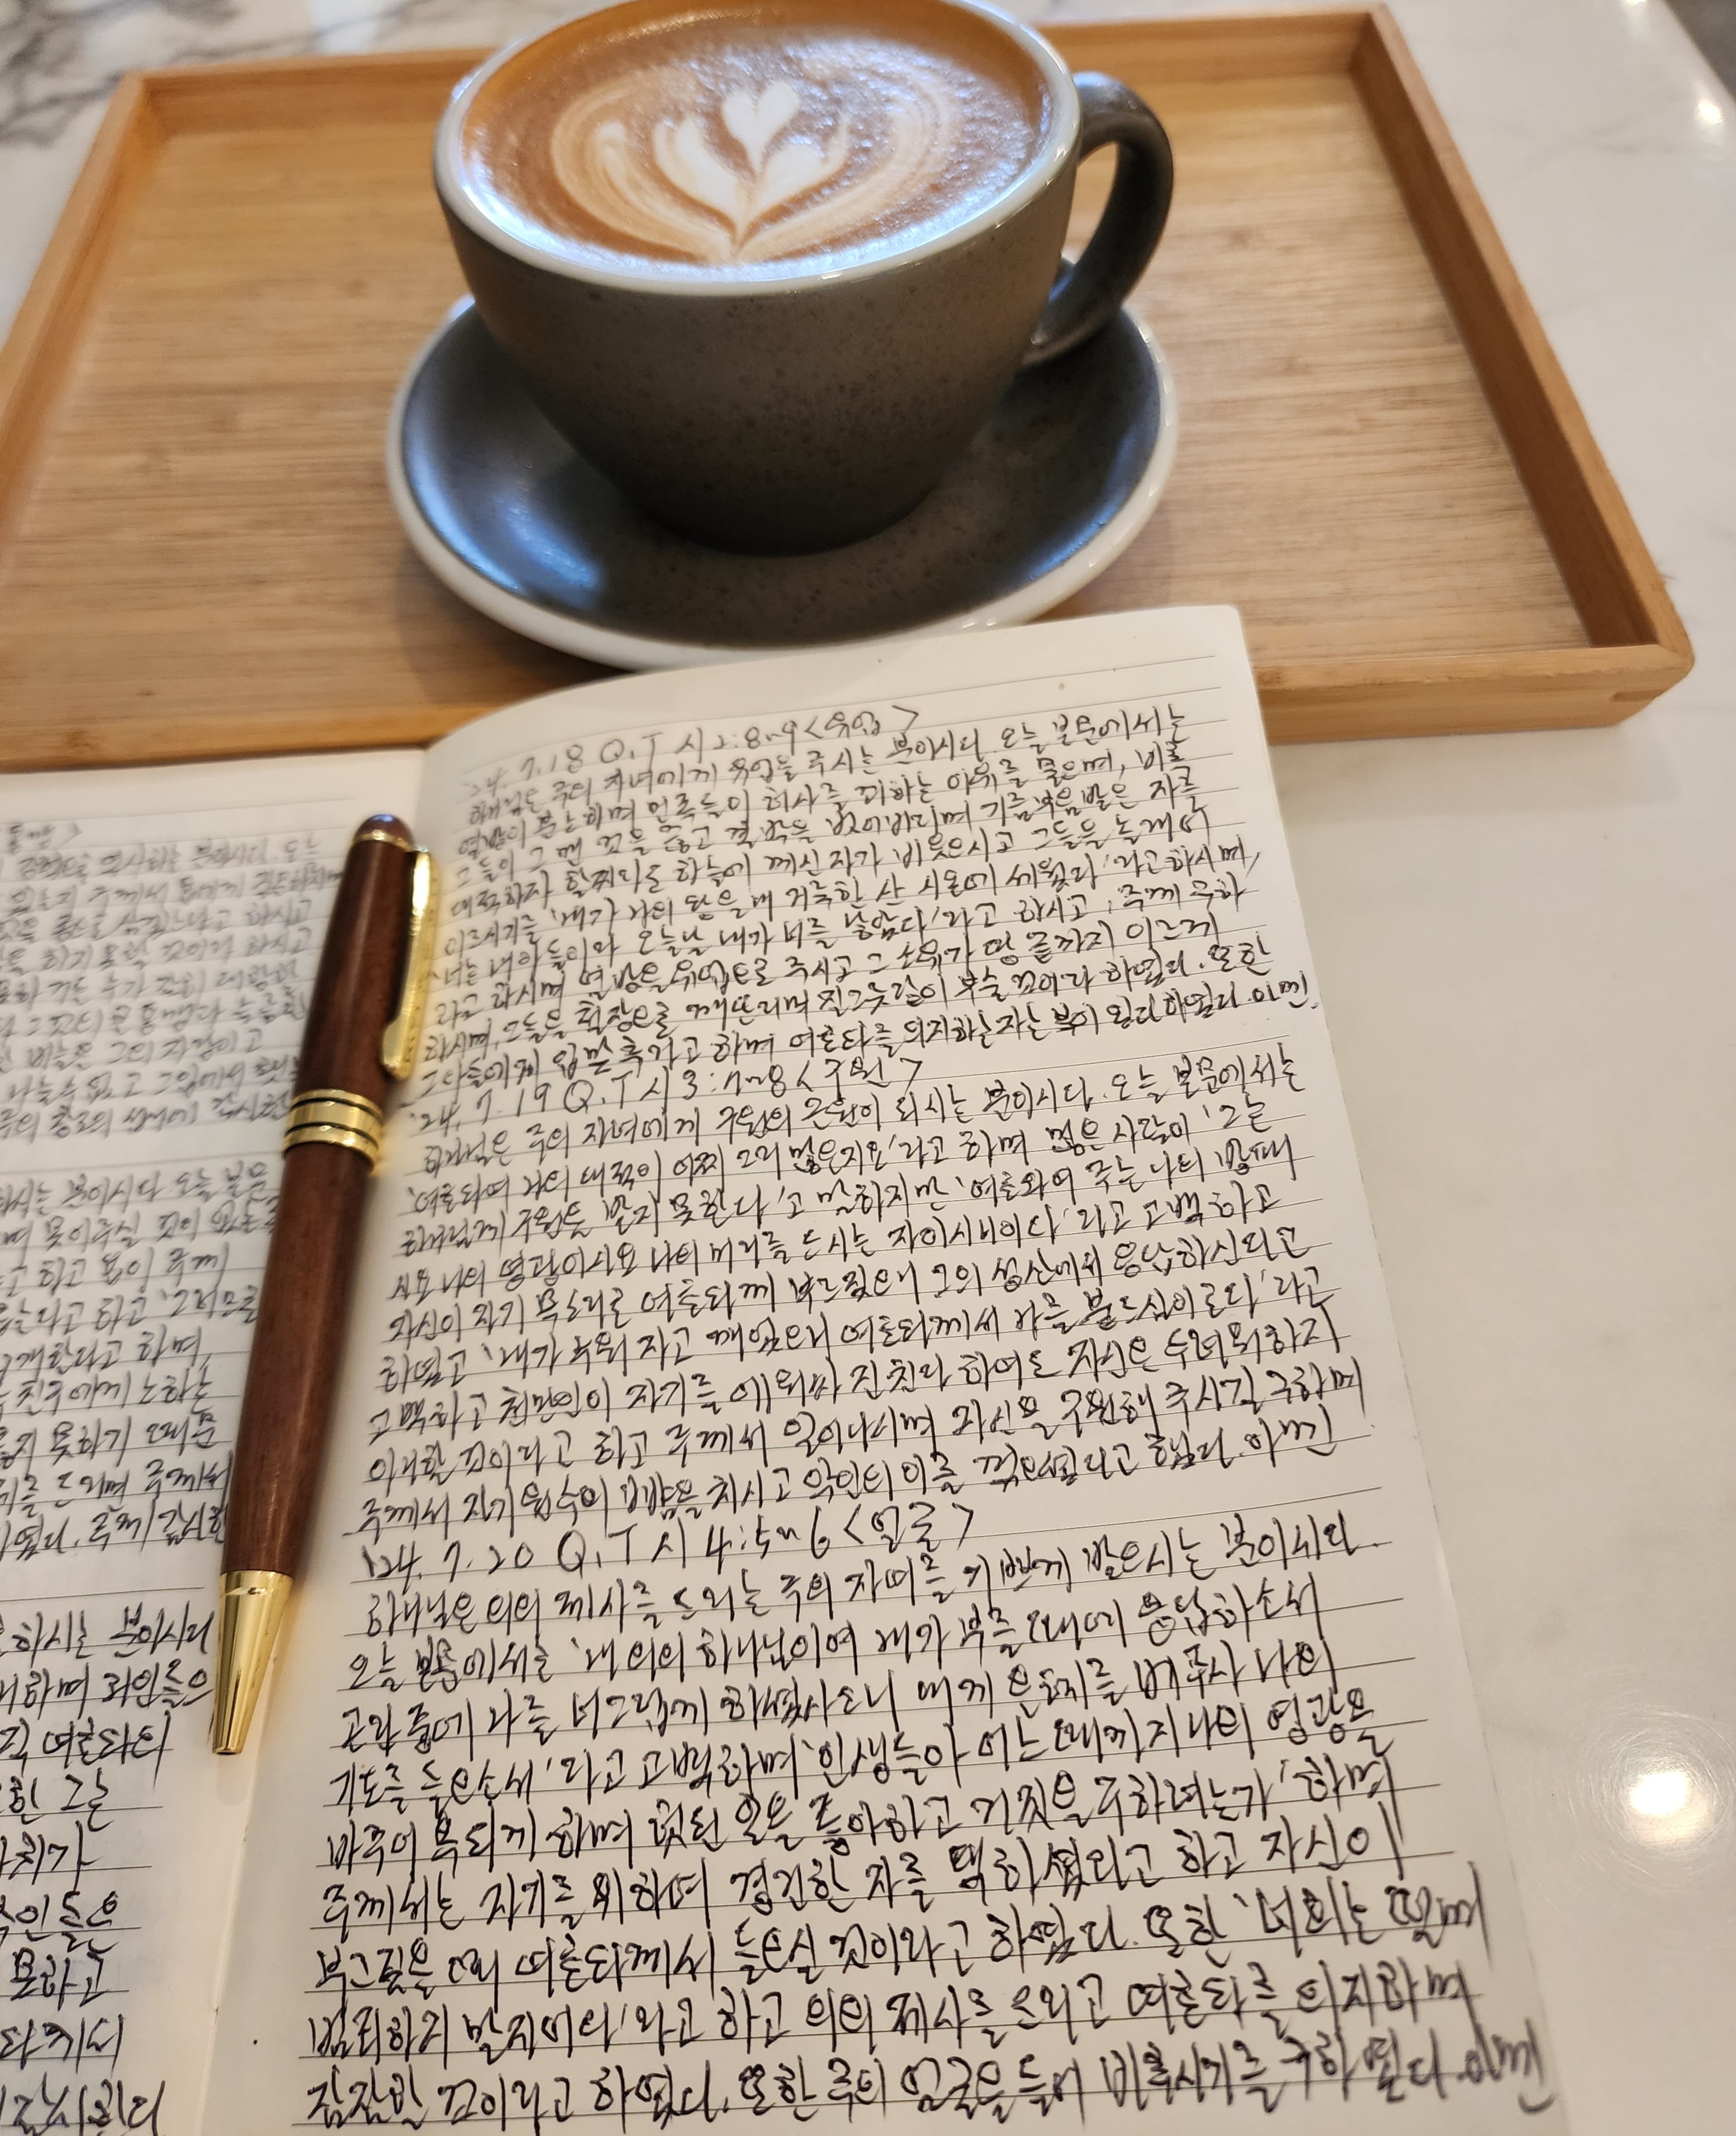 통해 >
으로 역사하는 분이시다. 오늘
있는지 주께서 욥에게
하시고
하지 못할 것이라 하시고
비늘은 그의 자랑이고
나눌 수 없고 그 입에서
하시는 분이시다 오늘 본문
고 하고 욥이 주께
라고 하고 '그러므로
회개한다고 하며,
친구에게 노하는
못하기 때문
를 드리며 주께서
였다. 주께 감사한
하시는 분이시다
하며 죄인들의
여호와의
한 그는
인들은
못하고
'24. 7. 18 Q.T 시 2:8~9 <유업>
하나님은 주의 자녀에게 유업을 주시는 분이시다. 오늘 본문에서는
열방이 분노하며 민족들이 허사를 꾀하는 이유를 물으며, 비록
그들이 그 맨 것을 끊고 결박을 벗어버리며 기름부음 받은 자를
대적하자 할찌라도 하늘에 계신 자가 비웃으시고 그들을 놀래어
이르시기를 '내가 나의 왕을 내 거룩한 산 시온에 세웠다'라고 하시며,
'너는 내 아들이라 오늘날 내가 너를 낳았다'라고 하시고, 주께 구하
라고 하시며 열방을 유업으로 주시고 그 소유가 땅 끝까지 이르게
하시며, 그들을 철장으로 깨뜨리며 질그릇같이 부술 것이라 하였다. 또한
그 아들에게 입맞추라고 하며 여호와를 의지하는 자는 복이 있다 하였다. 아멘.
'24. 7. 19 Q.T 시 3:7~8 <구원>
하나님은 주의 자녀에게 구원의 근원이 되시는 분이시다. 오늘 본문에서는
'여호와여 나의 대적이 어찌 그리 많은지요'라고 하며 많은 사람이 '그는
하나님께 구원을 받지 못한다'고 말하지만 '여호와여 주는 나의 방패
시요 나의 영광이시요 나의 머리를 드시는 자이시니이다'라고 고백하고
자신이 자기 목소리로 여호와께 부르짖으니 그의 성산에서 응답하신다고
하였고 '내가 누워 자고 깨었으니 여호와께서 나를 붙드심이로다'라고
고백하고 천만인이 자기를 에워싸 진친다 하여도 자신은 두려워하지
아니할 것이라고 하고 주께서 일어나시며 자신을 구원해 주시길 구하며
주께서 자기 원수의 뺨을 치시고 악인의 이를 꺾으셨다고 했다. 아멘
'24. 7. 20 Q.T 시 4:5~6 <얼굴>
하나님은 의의 제사를 드리는 주의 자녀를 기쁘게 받으시는 분이시다.
오늘 본문에서는 '내 의의 하나님이여 내가 부를 때에 응답하소서
곤란 중에 나를 너그럽게 하셨사오니 내게 은혜를 베푸사 나의
기도를 들으소서'라고 고백하며 '인생들아 어느 때까지 나의 영광을
바꾸어 욕되게 하며 헛된 일을 좋아하고 거짓을 구하려는가' 하며
주께서는 자기를 위하여 경건한 자를 택하셨다고 하고 자신이
부르짖을 때 여호와께서 들으실 것이라고 하였다. 또한 '너희는 떨며
범죄하지 말지어다'라고 하고 의의 제사를 드리고 여호와를 의지하며
잠잠할 것이라고 하였다. 또한 주의 얼굴을 들어 비추시기를 구하였다. 아멘